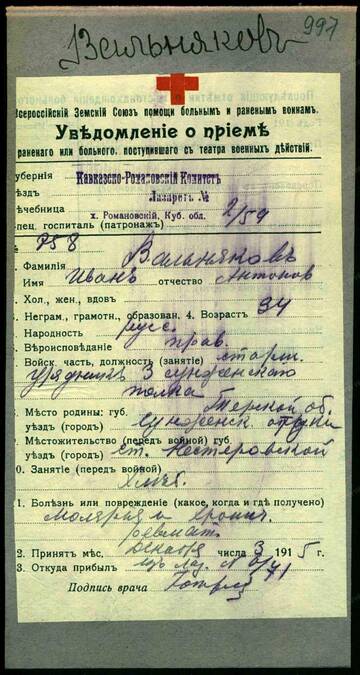 Вельняковъ 997
Всероссійскій Земскій Союзъ помощи больнымъ и раненымъ воинамъ.
Увѣдомленіе о пріемѣ
раненаго или больного, поступившаго съ театра военныхъ дѣйствій.
губернія Кавказско-Романовскій Комитетъ
уѣздъ Лазаретъ №
лѣчебница х. Романовскій, Куб. обл. 2/59
спец. госпиталь (патронажъ)
№ 758
Фамилія Вельняковъ
Имя Иванъ отчество Антоновъ
Хол., жен., вдов.
3. Неграм., грамотн., образован. 4. Возрастъ 34
Народность русс.
Вѣроисповѣданіе прав.
Войск. часть, должность (занятіе) старш.
урядникъ 3 Сунженскаго
полка
Мѣсто родины: губ. Терской об.
уѣздъ (городъ) Сунженск. отдѣла
Мѣстожительство (передъ войной) губ.
уѣздъ (городъ) ст. Нестеровской
10. Занятіе (передъ войной)
Хлѣб.
11. Болѣзнь или поврежденіе (какое, когда и гдѣ получено)
Малярія и хронич.
ревмат.
12. Принятъ мѣс. Декабря числа 3 1915 г.
13. Откуда прибылъ изъ лаз. №
Подпись врача